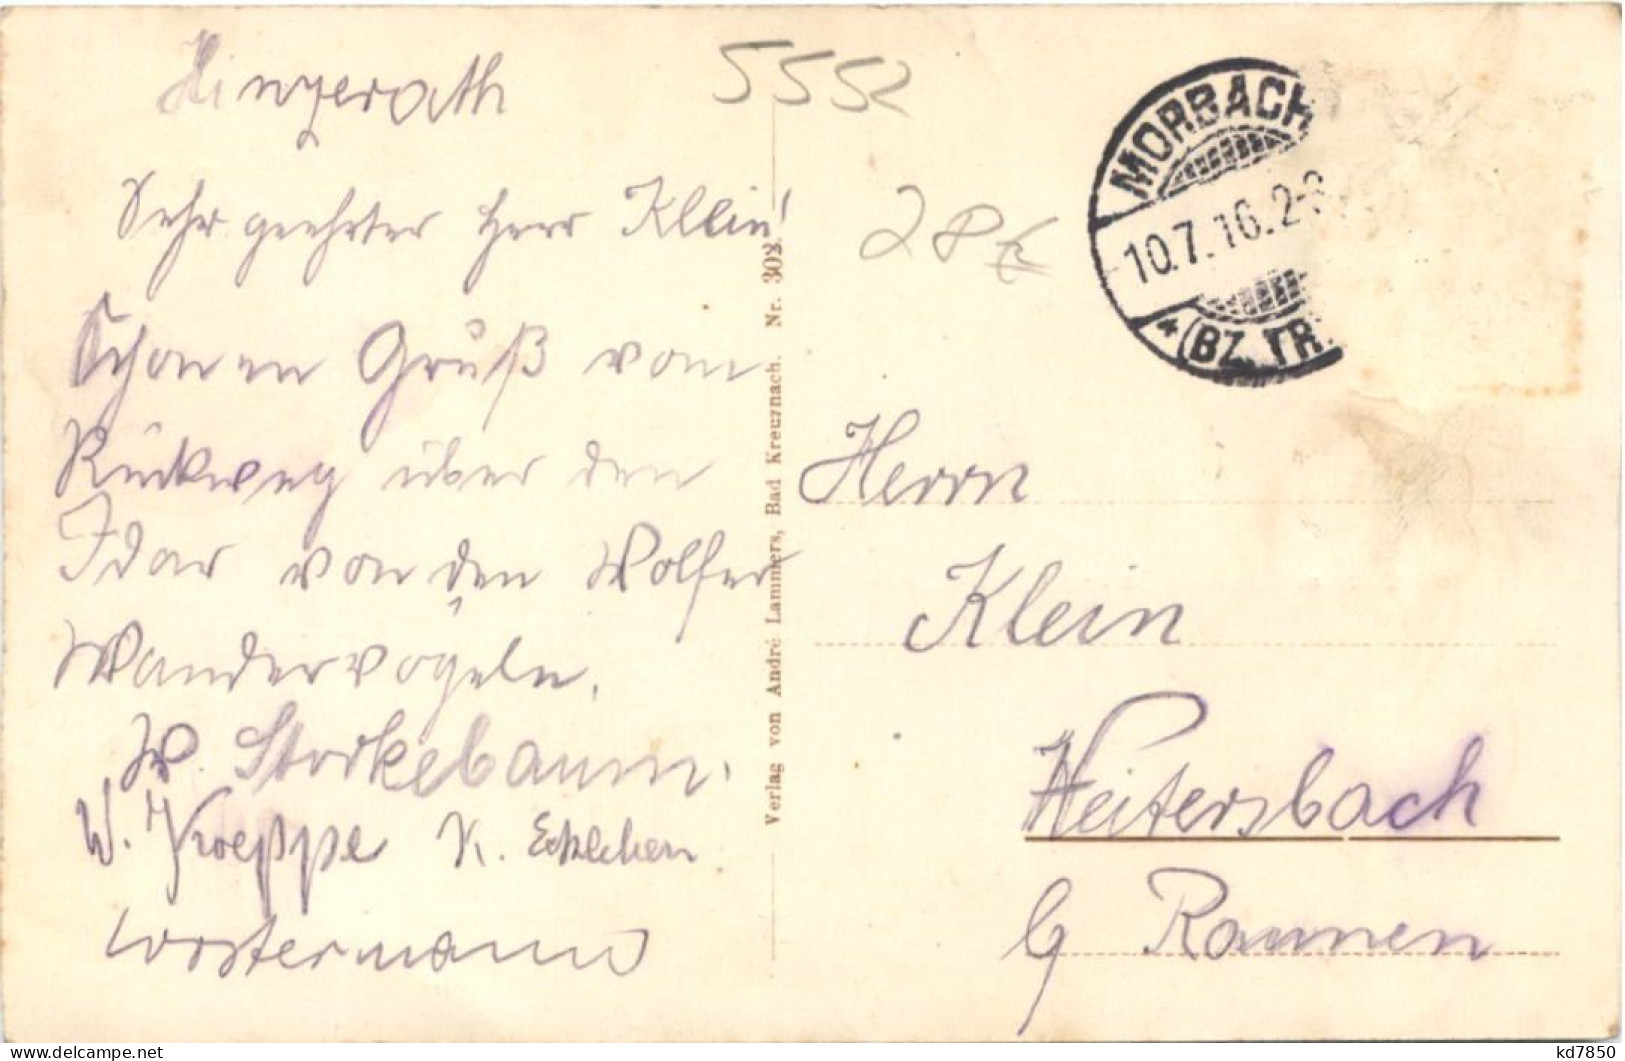 Hinzerath
Sehr geehrter Herr Klein!
Schönen Gruß vom
Rückweg über den
Idar von den Wolfer
Wandervögeln.
W. Storkebaum.
W. Koeppe K.
5552
28
MORBACH
10.7.16. 2-3
* (BZ. TR.
Verlag von André Lammers, Bad Kreuznach. Nr. 303.
Herrn
Klein
Weitersbach
b/ Raunen
kd7850